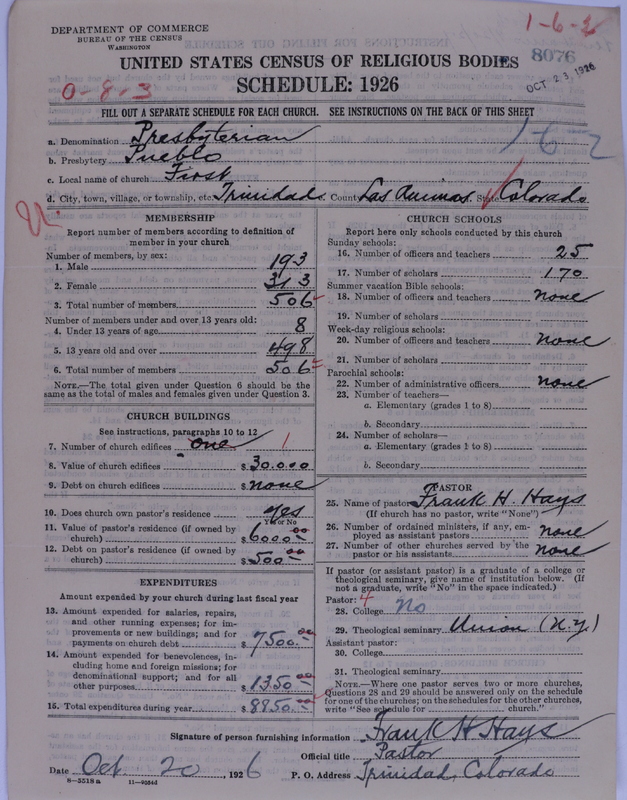 DEPARTMENT OF COMMERCE
BUREAU OF THE CENSUS
WASHINGTON
1-6-2
8076
OCT 23 1926
UNITED STATES CENSUS OF RELIGIOUS BODIES
SCHEDULE: 1926
0-8-3
FILL OUT A SEPARATE SCHEDULE FOR EACH CHURCH. SEE INSTRUCTIONS ON THE BACK OF THIS SHEET
a. Denomination Presbyterian
b. Presbytery Pueblo
c. Local name of church First
d. City, town, village, or township, etc. Trinidad County Las Animas State Colorado
162
MEMBERSHIP
Report number of members according to definition of
member in your church
Number of members, by sex:
1. Male 193
2. Female 313
3. Total number of members 506
Number of members under and over 13 years old:
4. Under 13 years of age 8
5. 13 years old and over 498
6. Total number of members 506
NOTE.—The total given under Question 6 should be the
same as the total of males and females given under Question 3.
CHURCH BUILDINGS
See instructions, paragraphs 10 to 12
7. Number of church edifices one 1
8. Value of church edifices $ 30.000
9. Debt on church edifices $ none
10. Does church own pastor's residence yes
Yes or No
11. Value of pastor's residence (if owned by
church) $ 6000.00
12. Debt on pastor's residence (if owned by
church) $ 500.00
EXPENDITURES
Amount expended by your church during last fiscal year
13. Amount expended for salaries, repairs,
and other running expenses; for im-
provements or new buildings; and for
payments on church debt $ 7500.00
14. Amount expended for benevolences, in-
cluding home and foreign missions; for
denominational support; and for all
other purposes $ 1350.00
15. Total expenditures during year $ 8850.00
CHURCH SCHOOLS
Report here only schools conducted by this church
Sunday schools:
16. Number of officers and teachers 25
17. Number of scholars 170
Summer vacation Bible schools:
18. Number of officers and teachers none
19. Number of scholars
Week-day religious schools:
20. Number of officers and teachers none
21. Number of scholars
Parochial schools:
22. Number of administrative officers none
23. Number of teachers—
a. Elementary (grades 1 to 8)
b. Secondary
24. Number of scholars—
a. Elementary (grades 1 to 8)
b. Secondary
PASTOR
25. Name of pastor Frank H. Hays
(If church has no pastor, write "None")
26. Number of ordained ministers, if any, em-
ployed as assistant pastors none
27. Number of other churches served by the
pastor or his assistants none
If pastor (or assistant pastor) is a graduate of a college or
theological seminary, give name of institution below. (If
not a graduate, write "No" in the space indicated.)
Pastor: 4
28. College No
29. Theological seminary Union (N.Y.)
Assistant pastor:
30. College
31. Theological seminary
NOTE.—Where one pastor serves two or more churches,
Questions 28 and 29 should be answered only on the schedule
for one of the churches; on the schedules for the other churches,
write "See schedule for church."
Signature of person furnishing information Frank H Hays
Official title Pastor
Date Oct 20, 1926 P. O. Address Trinidad, Colorado
8-5518 a